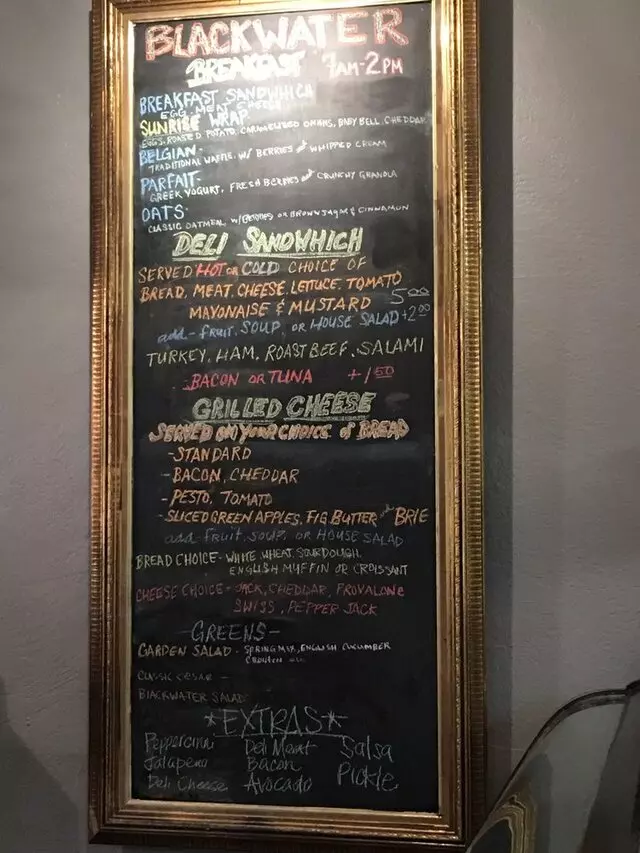 BLACKWATER
BREAKFAST 7AM-2PM
BREAKFAST SANDWHICH
EGG, MEAT, CHEESE
SUNRISE WRAP-
EGGS, ROASTED POTATO, CARAMELIZED ONIONS, BABY BELL, CHEDDAR
BELGIAN-
TRADITIONAL WAFFLE W/ BERRIES and WHIPPED CREAM
PARFAIT-
GREEK YOGURT, FRESH BERRIES and CRUNCHY GRANOLA
OATS-
CLASSIC OATMEAL W/BERRIES OR BROWN SUGAR & CINNAMON
DELI SANDWHICH
SERVED HOT or COLD CHOICE OF
BREAD, MEAT, CHEESE, LETTUCE, TOMATO
MAYONAISE & MUSTARD 5.00
add - FRUIT, SOUP, OR HOUSE SALAD +2.00
TURKEY, HAM, ROAST BEEF, SALAMI
BACON OR TUNA +1.50
GRILLED CHEESE
SERVED ON YOUR CHOICE of BREAD
-STANDARD
-BACON, CHEDDAR
-PESTO, TOMATO
-SLICED GREEN APPLES, FIG BUTTER and BRIE
add - fruit, SOUP, OR HOUSE SALAD
BREAD CHOICE - WHITE, WHEAT, SOURDOUGH,
ENGLISH MUFFIN OR CROISSANT
CHEESE CHOICE - JACK, CHEDDAR, PROVALONE
SWISS, PEPPER JACK
-GREENS-
GARDEN SALAD - SPRING MIX, ENGLISH CUCUMBER
CLASSIC CESAR -
BLACKWATER SALAD
*EXTRAS*
Peppercini Deli Meat Salsa
Jalapeno Bacon Pickle
Deli Cheese Avocado